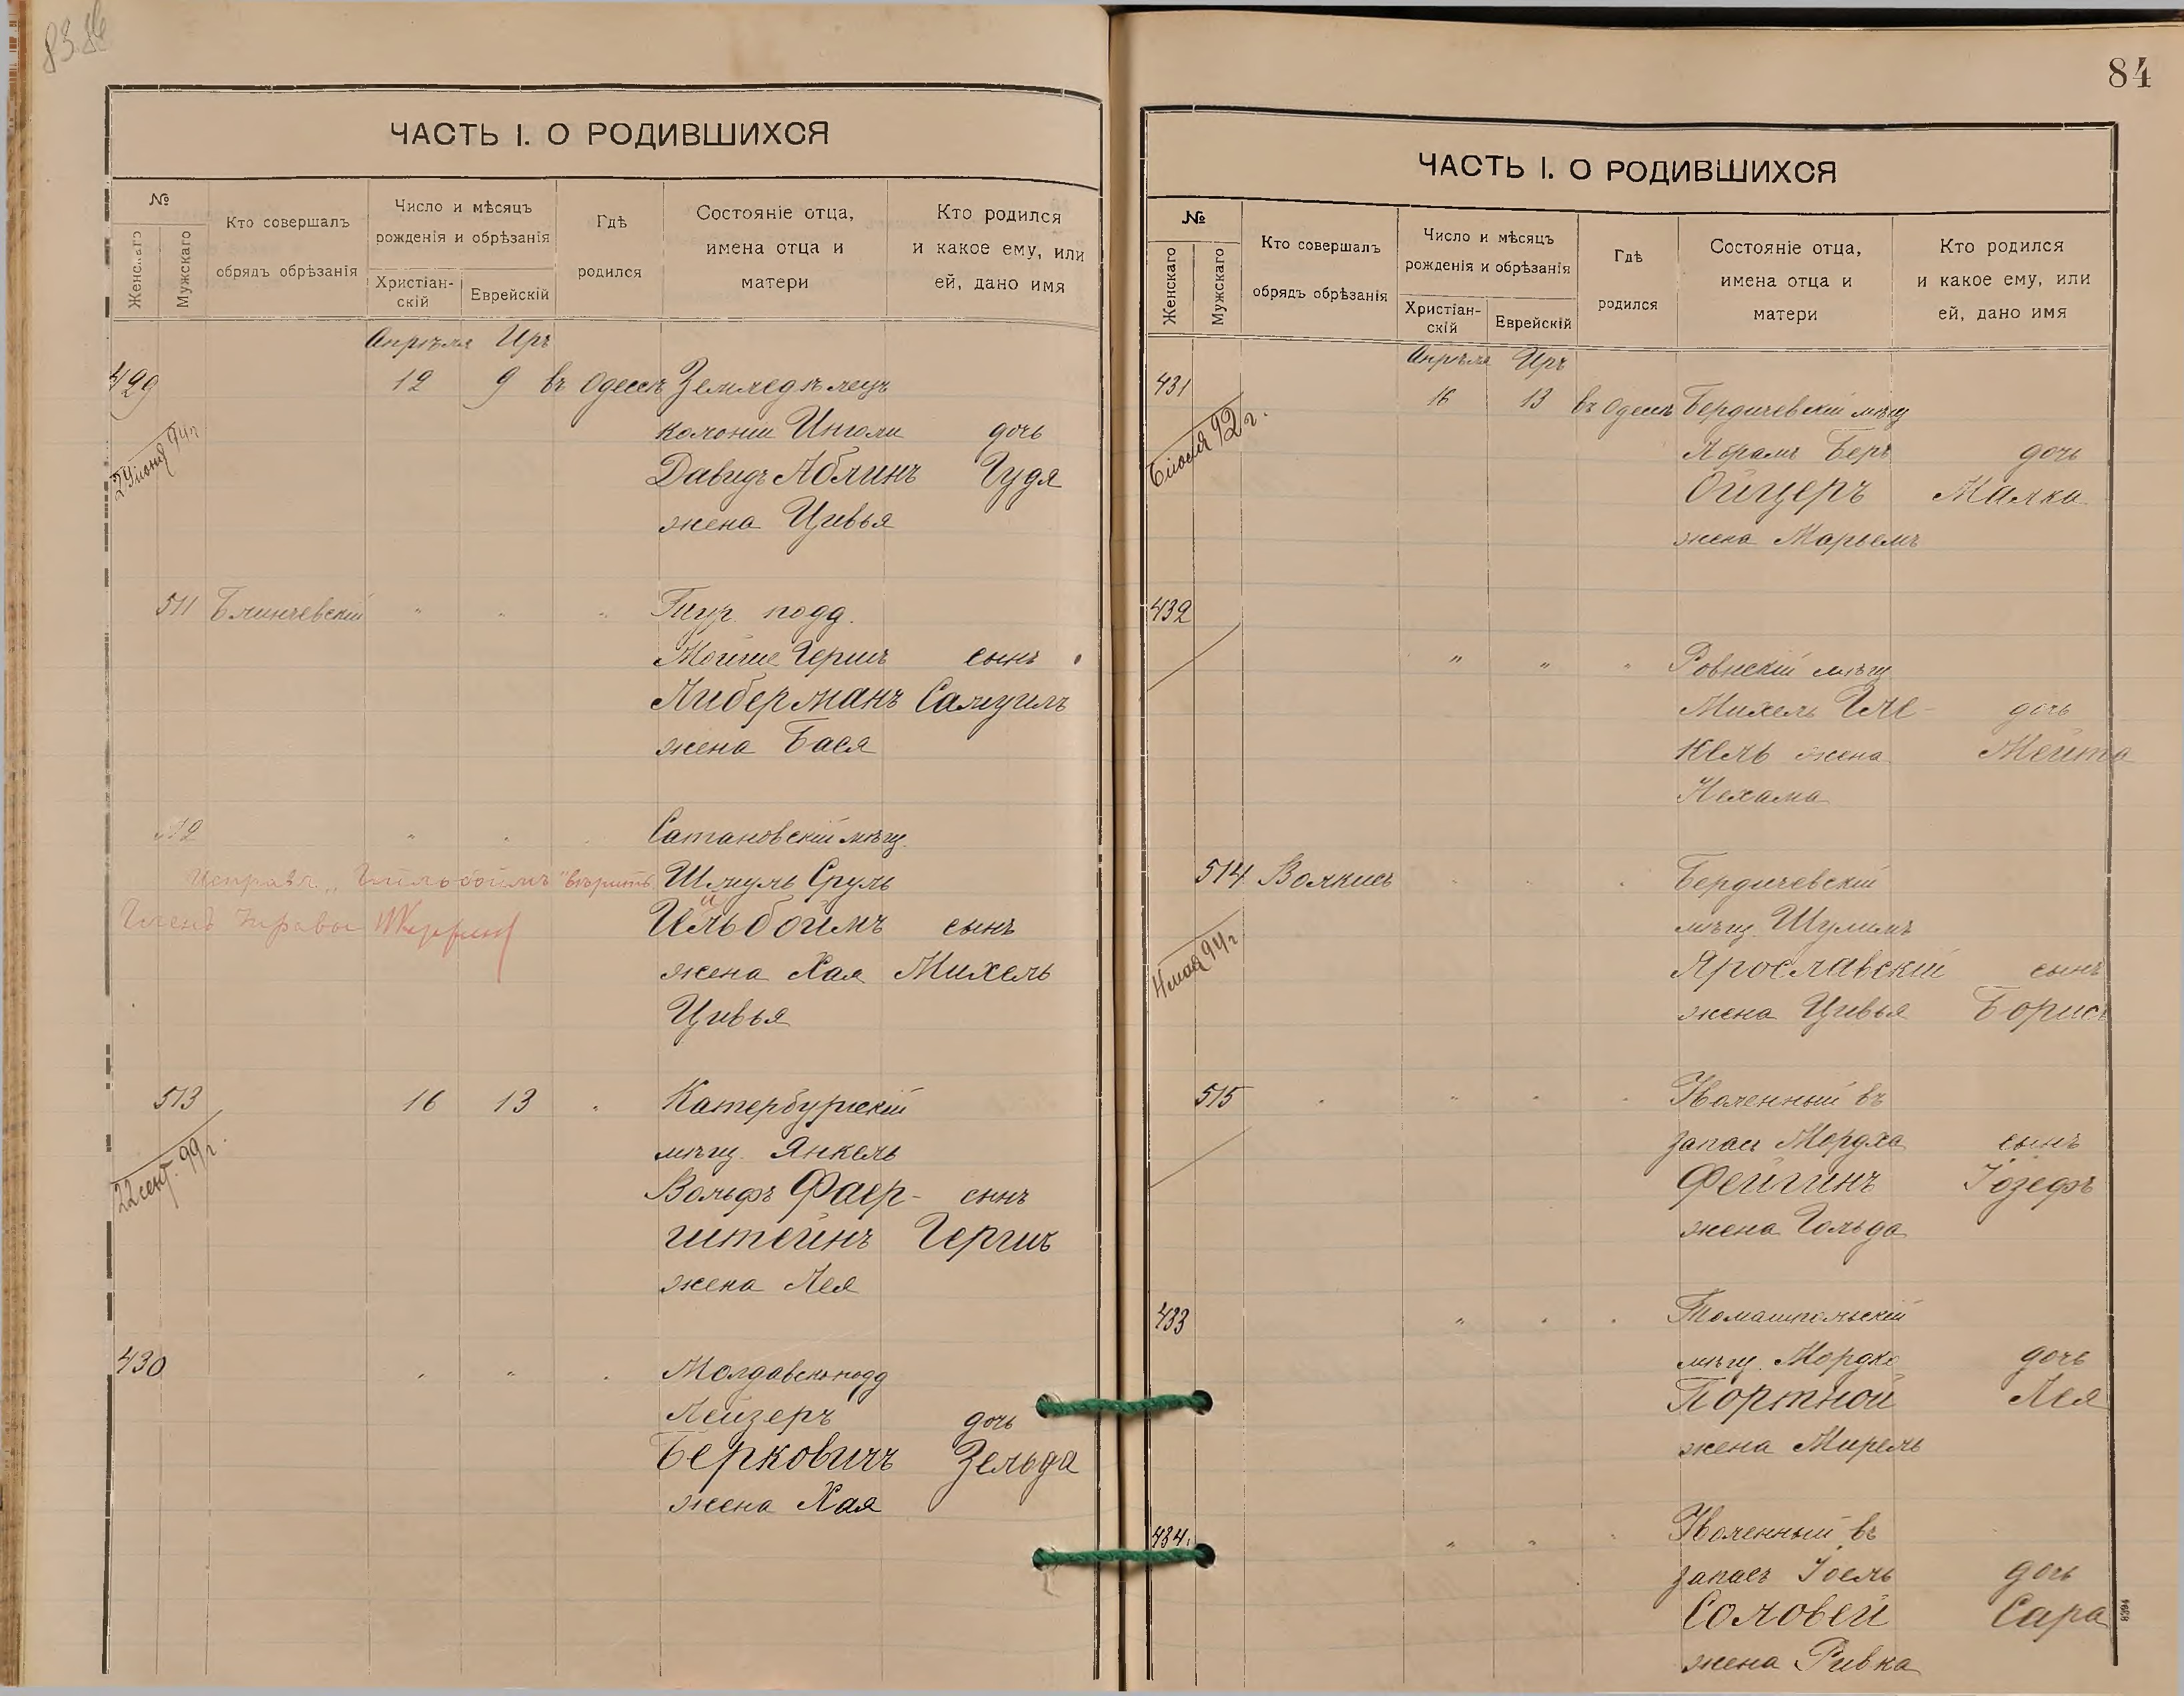 84
ЧАСТЬ I. О РОДИВШИХСЯ
№
Женскаго
Мужскаго
Кто совершалъ
обрядъ обрѣзанія
Число и мѣсяцъ
рожденія и обрѣзанія
Христіан-
скій
Еврейскій
Гдѣ
родился
Состояніе отца,
имена отца и
матери
Кто родился
и какое ему, или
ей, дано имя
Апрѣля Иръ
429 12 9 въ Одессѣ Земледѣлецъ
колоніи дочь
Давидъ Аблинъ Гудя
24 іюня 94 г
жена Цивья
511 Блинчевскій " " " Тур. подд.
Мойше Гершъ сынъ
Либерманъ Самуилъ
жена Бася
512 " " Сатановскій мѣщ.
Исправл. "Гильбоймъ" вѣрить Шмуль Сруль
и
Гельбоймъ сынъ
жена Хая Михель
Цивья
513 16 13 " Катербургскій
мѣщ. Янкель
22 сент. 99 г.
Вольфъ Фаер- сынъ
штейнъ Гершъ
жена Лея
430 " " " Молдавско подд
Лейзеръ дочь
Берковичъ Зельда
жена Хая
ЧАСТЬ I. О РОДИВШИХСЯ
№
Женскаго
Мужскаго
Кто совершалъ
обрядъ обрѣзанія
Число и мѣсяцъ
рожденія и обрѣзанія
Христіан-
скій
Еврейскій
Гдѣ
родился
Состояніе отца,
имена отца и
матери
Кто родился
и какое ему, или
ей, дано имя
Апрѣля Иръ
431 16 13 въ Одессѣ Бердичевскій мѣщ
92 г.
Абрамъ Беръ дочь
Ойцеръ Малка
жена Марьемъ
432
" " " Ровнскій мѣщ
Михель Гле- дочь
кель жена Мейта
Нехама
514 Волкисъ " " " Бердичевскій
мѣщ. Шулимъ
4 мая 94 г
Ярославскій сынъ
жена Цивья Борисъ
515 " " " " Уволенный въ
запасъ Мордха сынъ
Фейгинъ Іозефъ
жена Гольда
433 " " " Томашпольскій
мѣщ. Мордко дочь
Портной Лея
жена Мирель
434. " " " Уволенный въ
запасъ Іоель дочь
Соловей Сара
жена Ривка
8394